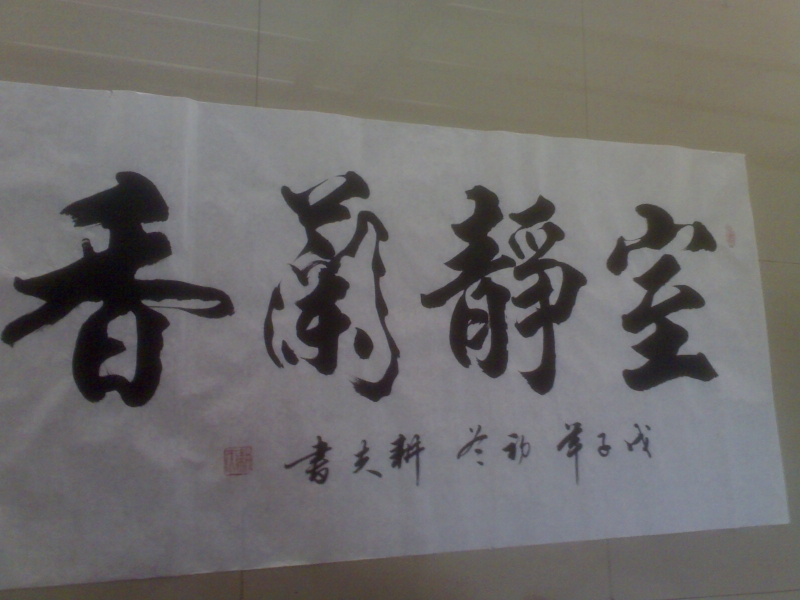 室靜蘭香
戊子年初冬耕夫書